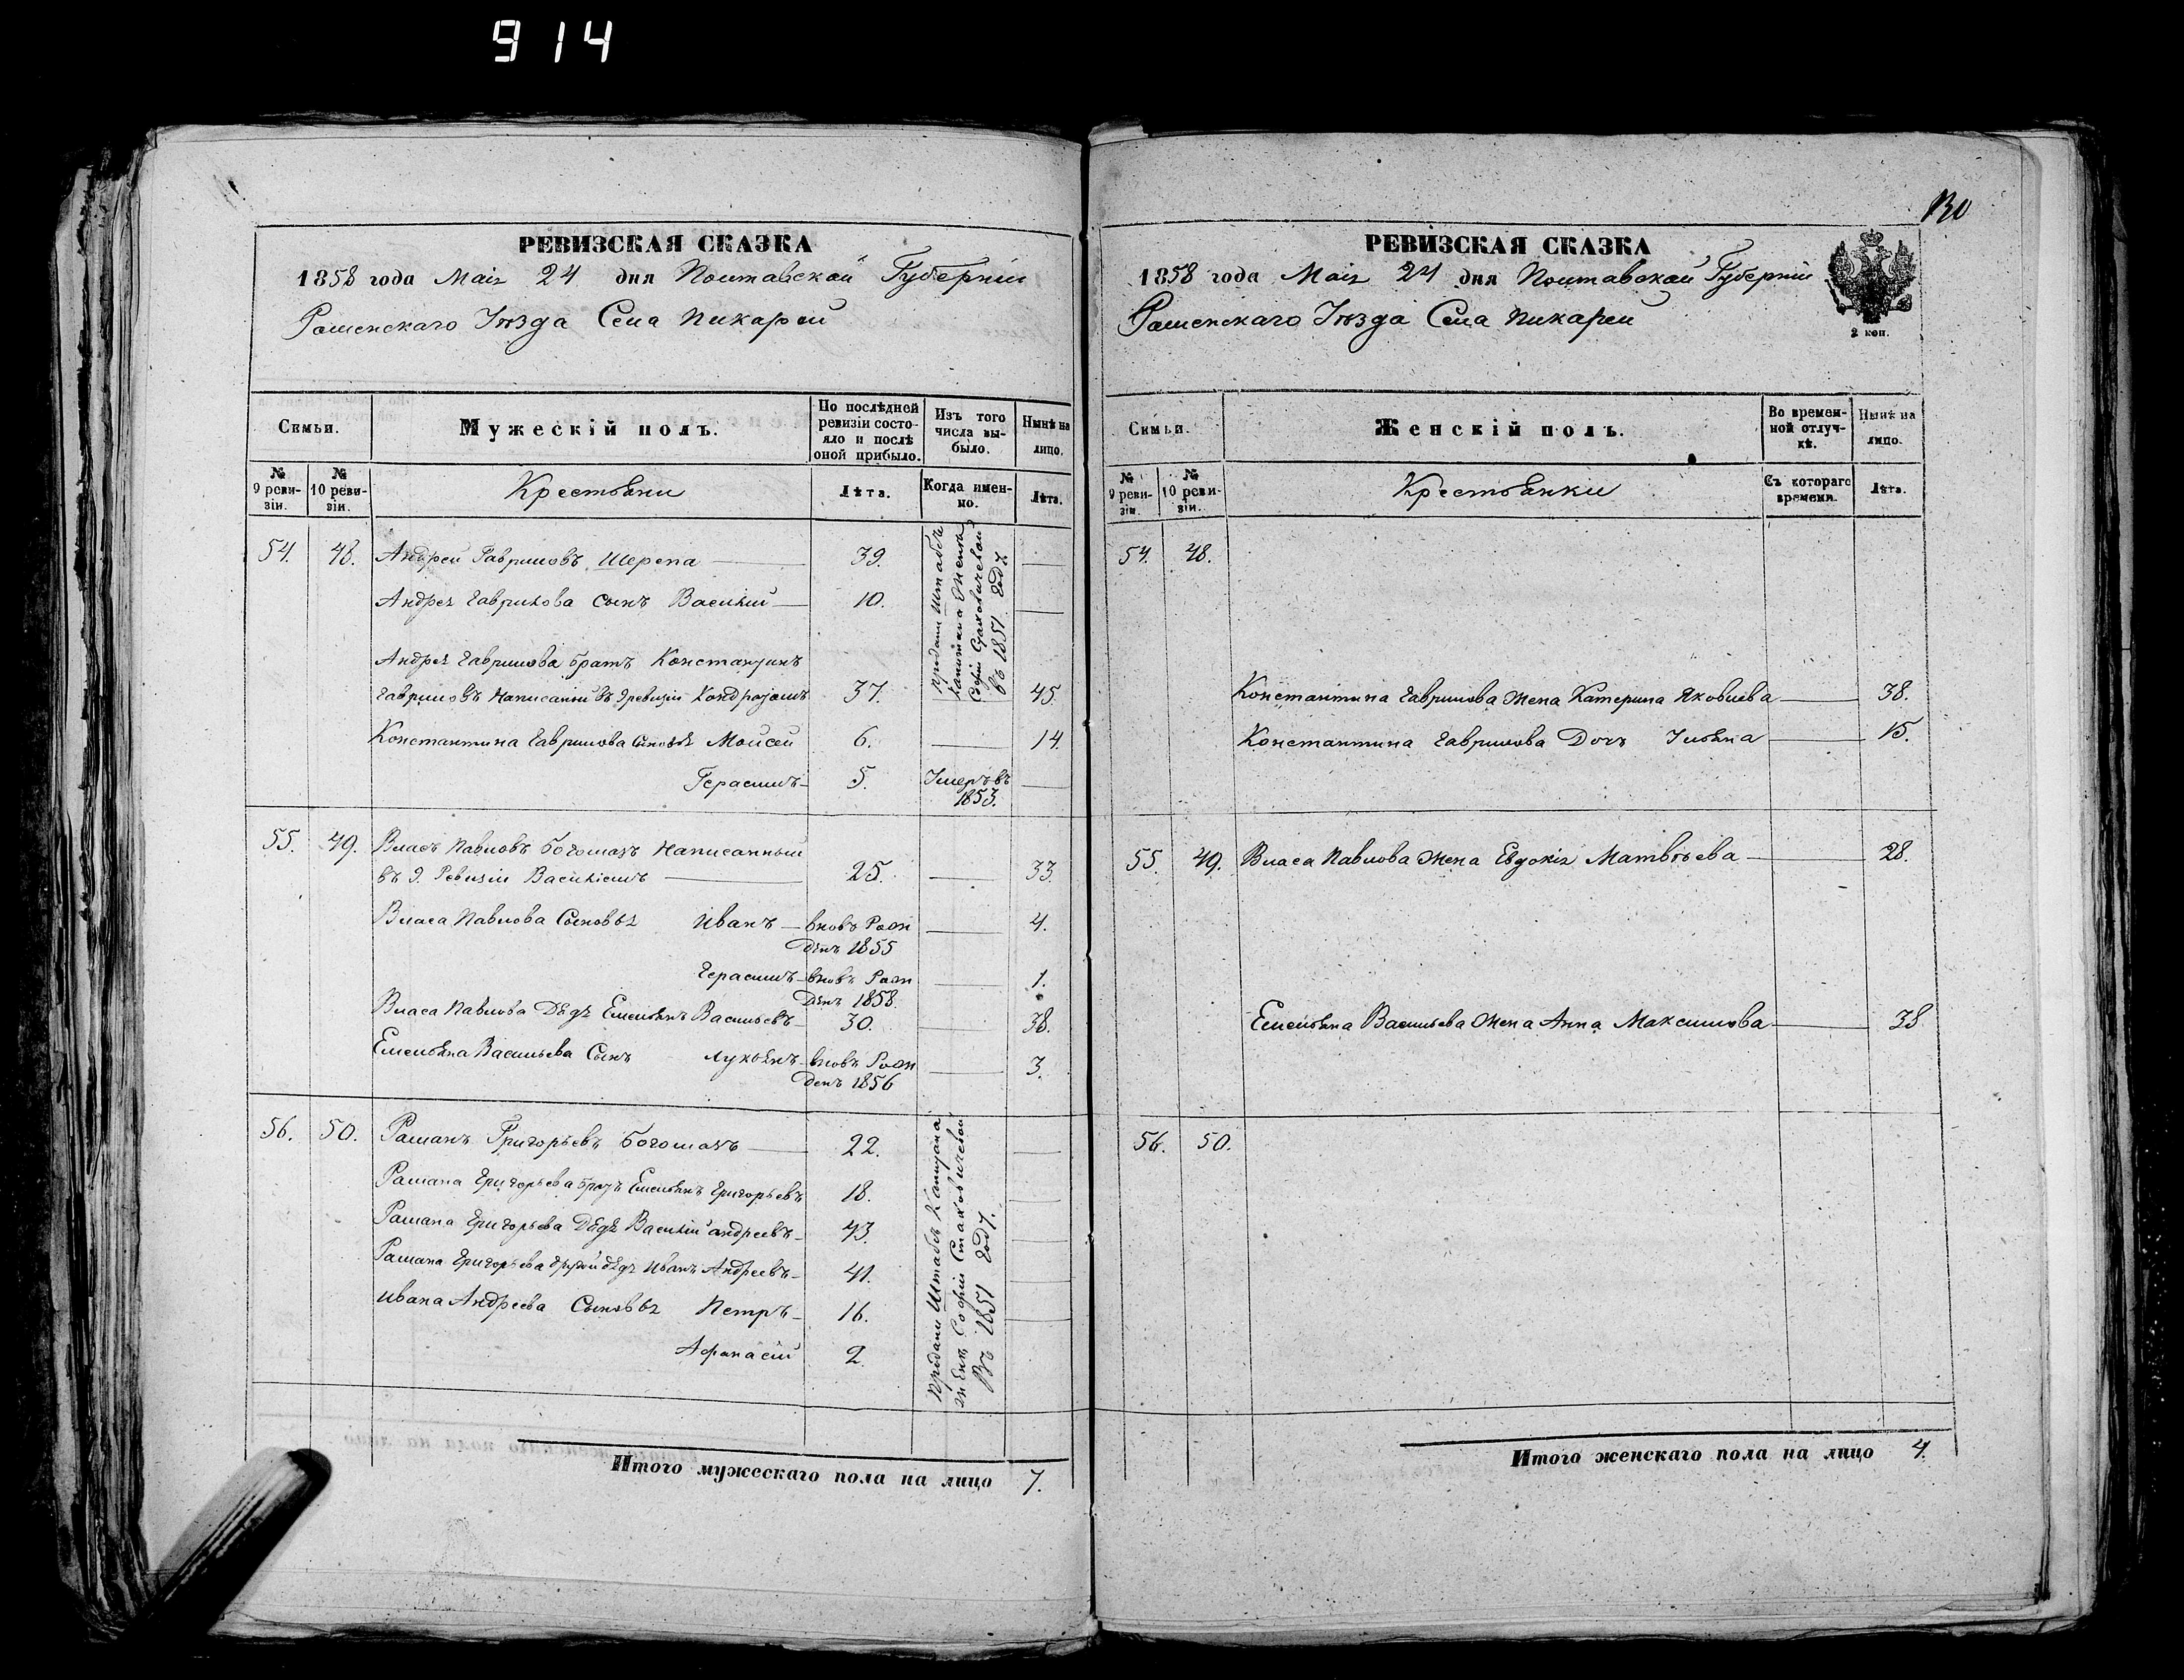 914
130
РЕВИЗСКАЯ СКАЗКА
1858 года Маія 24 дня Полтавской Губерніи
Роменскаго Уѣзда Села Пикарей
Семьи.
Мужескій полъ.
По послѣдней ревизіи состояло и послѣ оной прибыло.
Изъ того числа выбыло.
Нынѣ на лицо.
№ 9 ревизіи.
№ 10 ревизіи.
Крестьяни
Лѣта.
Когда именно.
Лѣта.
54. 48. Андрей Гавриловъ Шерепа 39.
Андрея Гаврилова сынъ Василий 10.
проданы Штабсъ
Капитана Женѣ
Софіи Стаховичевой
въ 1851 году.
Андрея Гаврилова братъ Константинъ
Гавриловъ написаный въ 9 ревизіи Кондратомъ 37. 45.
Константина Гаврилова сыновья Мойсей 6. 14.
Герасимъ 5. Умеръ въ 1853.
55. 49. Власъ Павловъ Богомазъ написанный
въ 9. Ревизіи Василіемъ 25. 33.
Власа Павлова Сыновья Иванъ вновь Рожденъ 1855 4.
Герасимъ вновь Рожденъ 1858 1.
Власа Павлова Дядя Емельянъ Васильевъ 30. 38.
Емельяна Васильева Сынъ Лукьянъ вновь Рожденъ 1856 3.
56. 50. Романъ Григорьевъ Богомазъ 22.
Романа Григорьева братъ Емельянъ Григорьевъ 18.
Романа Григорьева Дядя Василій Андреевъ 43.
Романа Григорьева другой дядя Иванъ Андреевъ 41.
Ивана Андреева Сыновья Петръ 16.
Афанасій 2.
проданы Штабсъ Капитана
женѣ Софіи Стаховичевой
Въ 1851 году.
Итого мужескаго пола на лицо 7.
РЕВИЗСКАЯ СКАЗКА
1858 года Маія 24 дня Полтавской Губерніи
Роменскаго Уѣзда Села Пикарей
2 коп.
Семьи.
Женскій полъ.
Во временной отлучкѣ.
Нынѣ на лицо.
№ 9 ревизіи.
№ 10 ревизіи.
Крестьянки
Съ котораго времени.
Лѣта.
54. 48.
Константина Гаврилова жена Катерина Яковлева 38.
Константина Гаврилова Дочь Ульяна 15.
55. 49. Власа Павлова жена Евдокія Матвѣева 28.
Емельяна Васильева жена Анна Максимова 38
56. 50.
Итого женскаго пола на лицо 4.